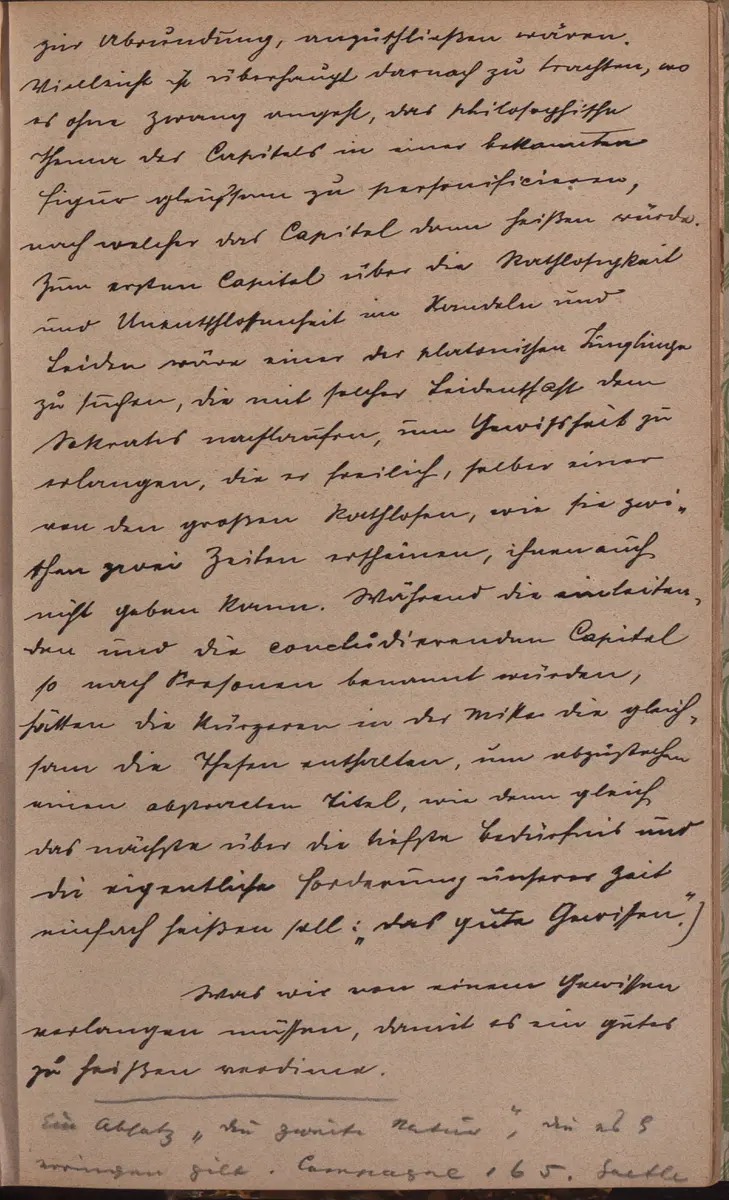 zur Abrundung, anzuschließen wären.
Vielleicht ist überhaupt darnach zu trachten, wo
es ohne Zwang angeht, das philosophische
Thema des Capitels in einer bekannten
Figur gleichsam zu personificieren,
nach welcher das Capitel dann heißen würde.
Zum ersten Capitel über die Rathlosigkeit
und Unentschlossenheit im Handeln und
Leiden wäre einer der platonischen Jünglinge
zu suchen, die mit solcher Leidenschaft dem
Sokrates nachlaufen, um Gewissheit zu
erlangen, die er freilich, selber einer
von den großen Rathlosen, wie sie zwi„
schen zwei Zeiten erscheinen, ihnen auch
nicht geben kann. Während die einleiten„
den und die concludierenden Capitel
so nach Personen benannt würden,
hätten die kürzeren in der Mitte die gleich„
sam die Thesen enthalten, um abzustechen
einen abstracten Titel, wie denn gleich
das nächste über die tiefste Bedürfnis und
die eigentliche Forderung unserer Zeit
einfach heißen soll: „das gute Gewissen“.)
Was wir von einem Gewissen
verlangen müssen, damit es ein gutes
zu heißen verdiene.
Ein Absatz „die zweite Natur“, die es §
erringen gilt. 165.